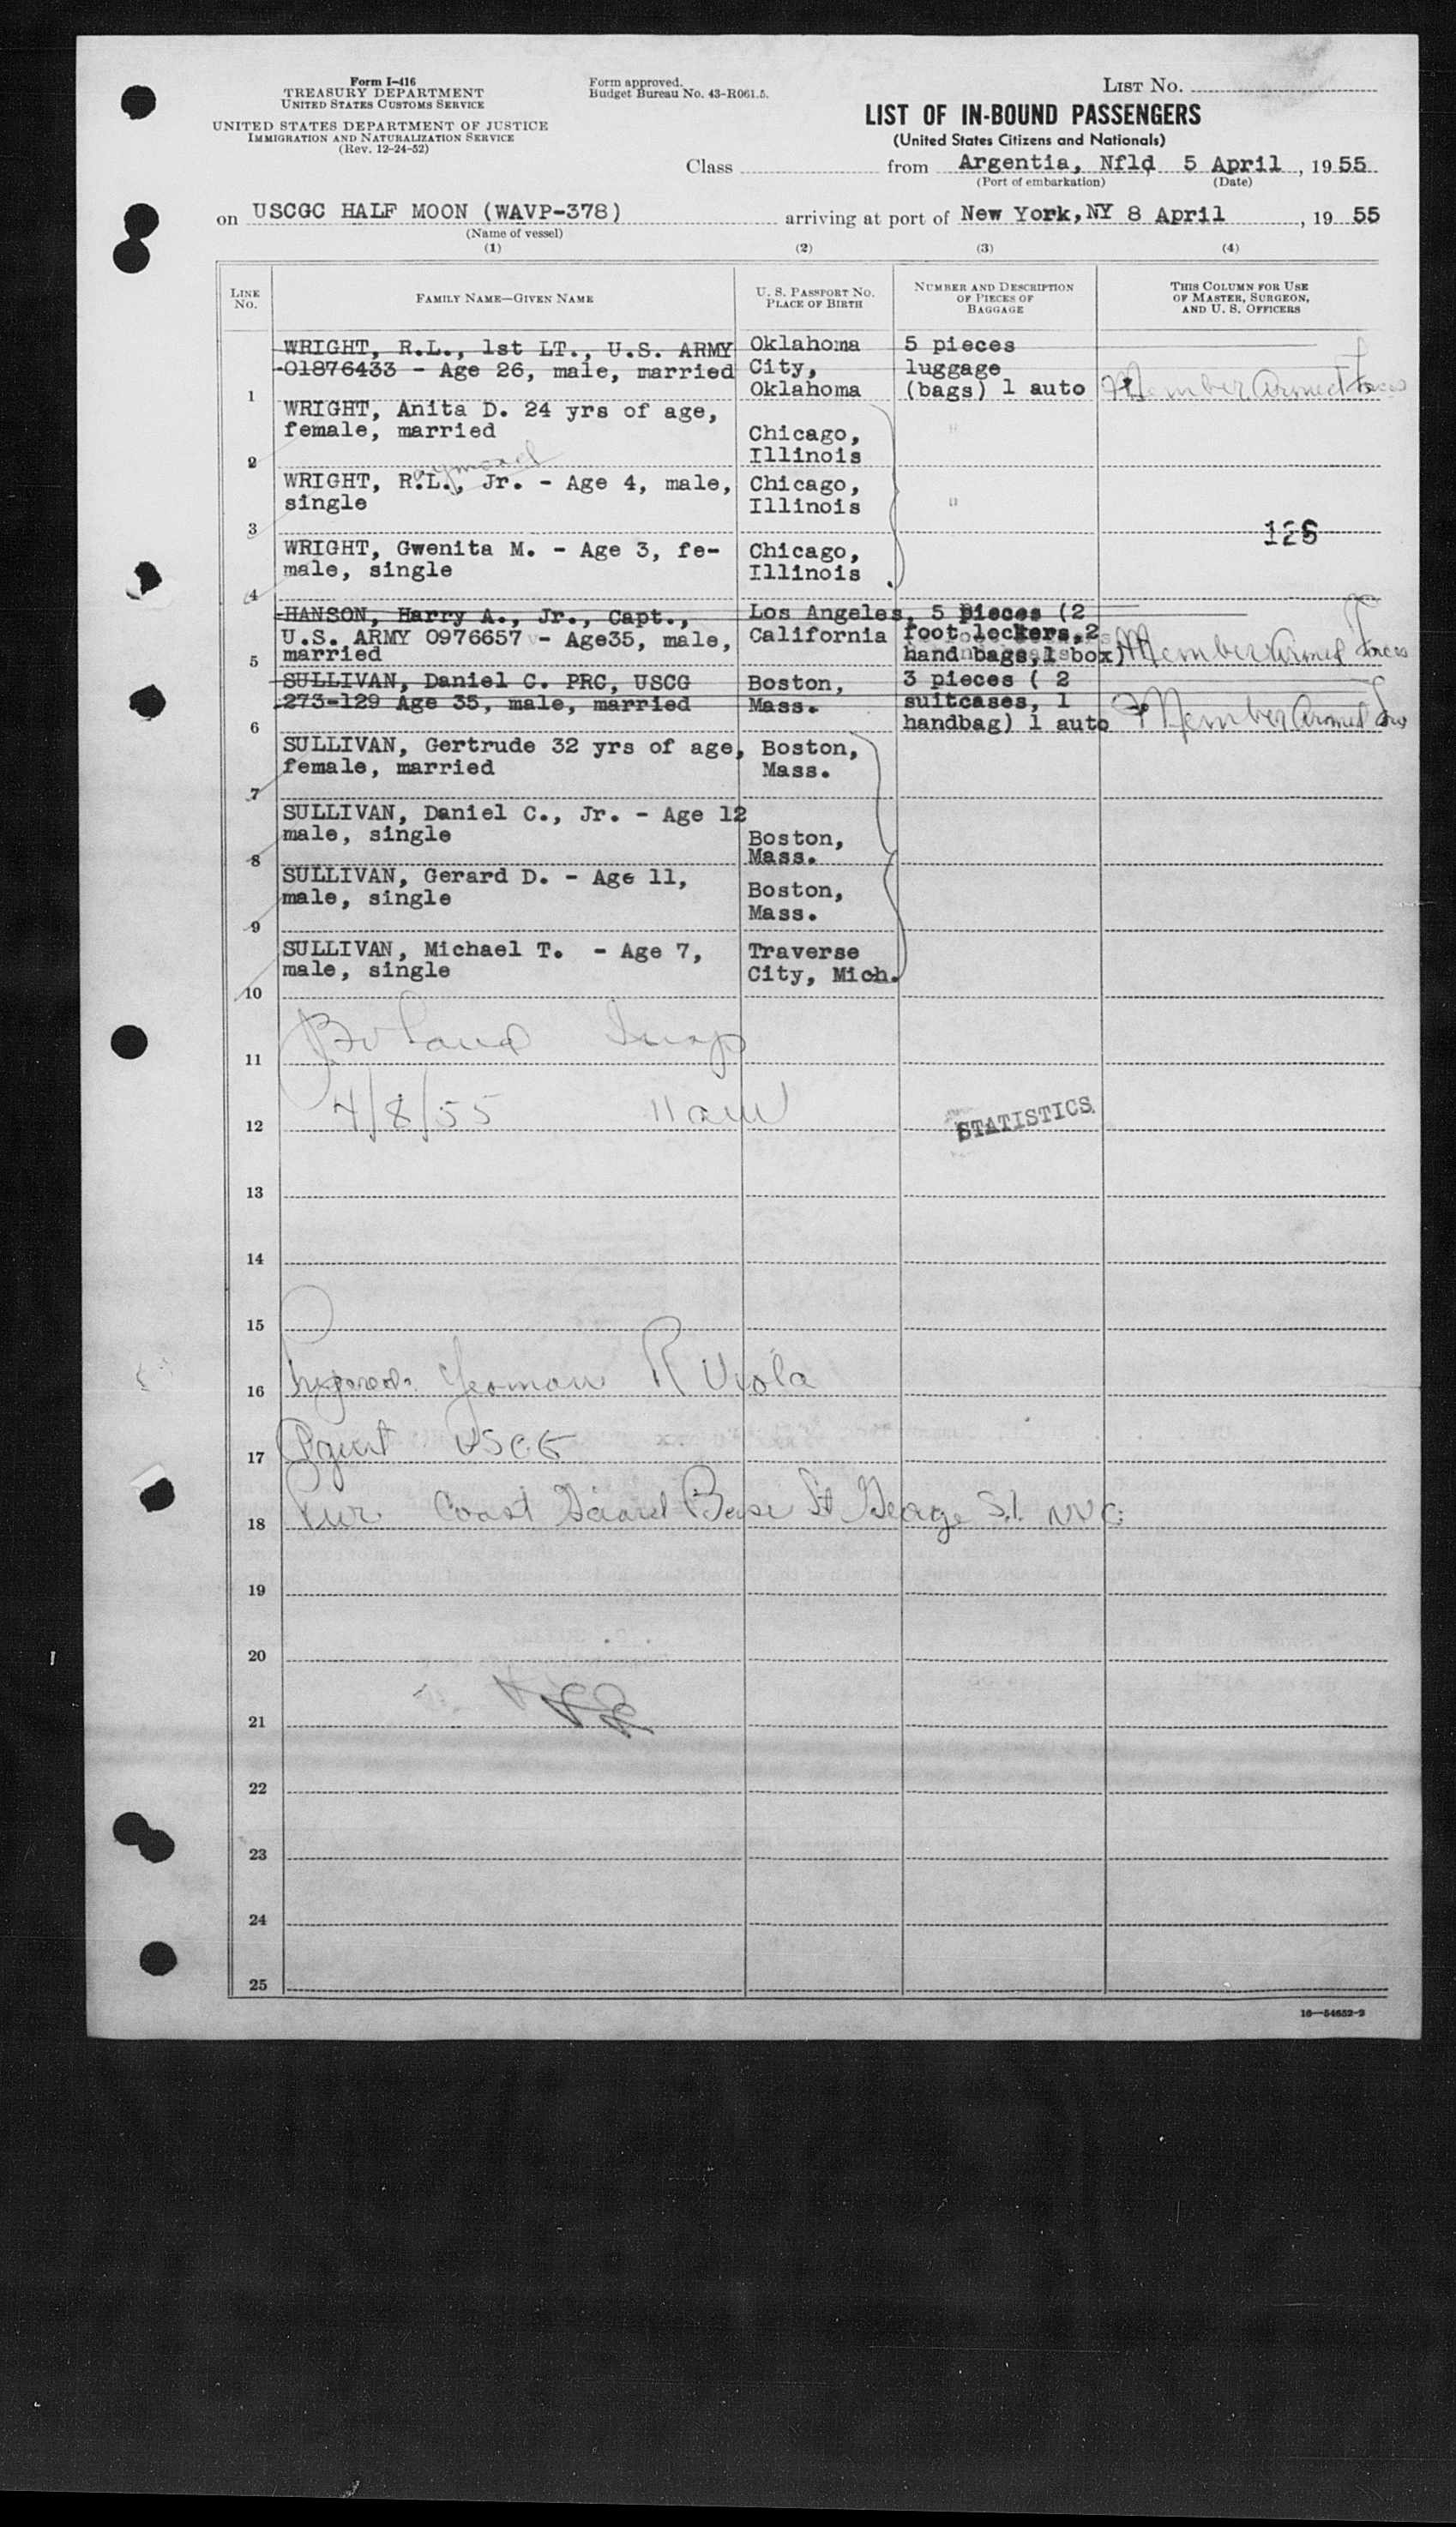 Form I-416
TREASURY DEPARTMENT
UNITED STATES CUSTOMS SERVICE
UNITED STATES DEPARTMENT OF JUSTICE
IMMIGRATION AND NATURALIZATION SERVICE
(Rev. 12-24-52)
Form approved.
Budget Bureau No. 43-R061.5.
LIST NO.
LIST OF IN-BOUND PASSENGERS
(United States Citizens and Nationals)
Class from Argentia, Nfld 5 April, 1955
(Port of embarkation) (Date)
on USCGC HALF MOON (WAVP-378) arriving at port of New York, NY 8 April, 1955
(Name of vessel)
(1) (2) (3) (4)
LINE NO.
FAMILY NAME—GIVEN NAME
U. S. PASSPORT NO.
PLACE OF BIRTH
NUMBER AND DESCRIPTION
OF PIECES OF
BAGGAGE
THIS COLUMN FOR USE
OF MASTER, SURGEON,
AND U. S. OFFICERS
WRIGHT, R.L., 1st LT., U.S. ARMY Oklahoma 5 pieces
01876433 - Age 26, male, married City, luggage
1 Oklahoma (bags) 1 auto Member Armed Forces
WRIGHT, Anita D. 24 yrs of age,
female, married Chicago, "
2 Illinois
Raymond
WRIGHT, R.L., Jr. - Age 4, male, Chicago,
single Illinois "
3 126
WRIGHT, Gwenita M. - Age 3, fe- Chicago,
male, single Illinois
4
HANSON, Harry A., Jr., Capt., Los Angeles, 5 pieces (2
U.S. ARMY 0976657 - Age35, male, California foot lockers, 2
5 married hand bags, 1 box) Member Armed Forces
SULLIVAN, Daniel C. PRC, USCG Boston, 3 pieces ( 2
273-129 Age 35, male, married Mass. suitcases, 1
6 handbag) 1 auto Member Armed Forces
SULLIVAN, Gertrude 32 yrs of age, Boston,
female, married Mass.
7
SULLIVAN, Daniel C., Jr. - Age 12
male, single Boston,
8 Mass.
SULLIVAN, Gerard D. - Age 11,
male, single Boston,
9 Mass.
SULLIVAN, Michael T. - Age 7, Traverse
male, single City, Mich.
10
11 Insp
12 4/8/55 11 am STATISTICS
13
14
15
16 Yeoman R Viola
17 Agent USCG
18 Coast Guard Base St George S.I. NYC
19
20
21
22
23
24
25
16—54652-2